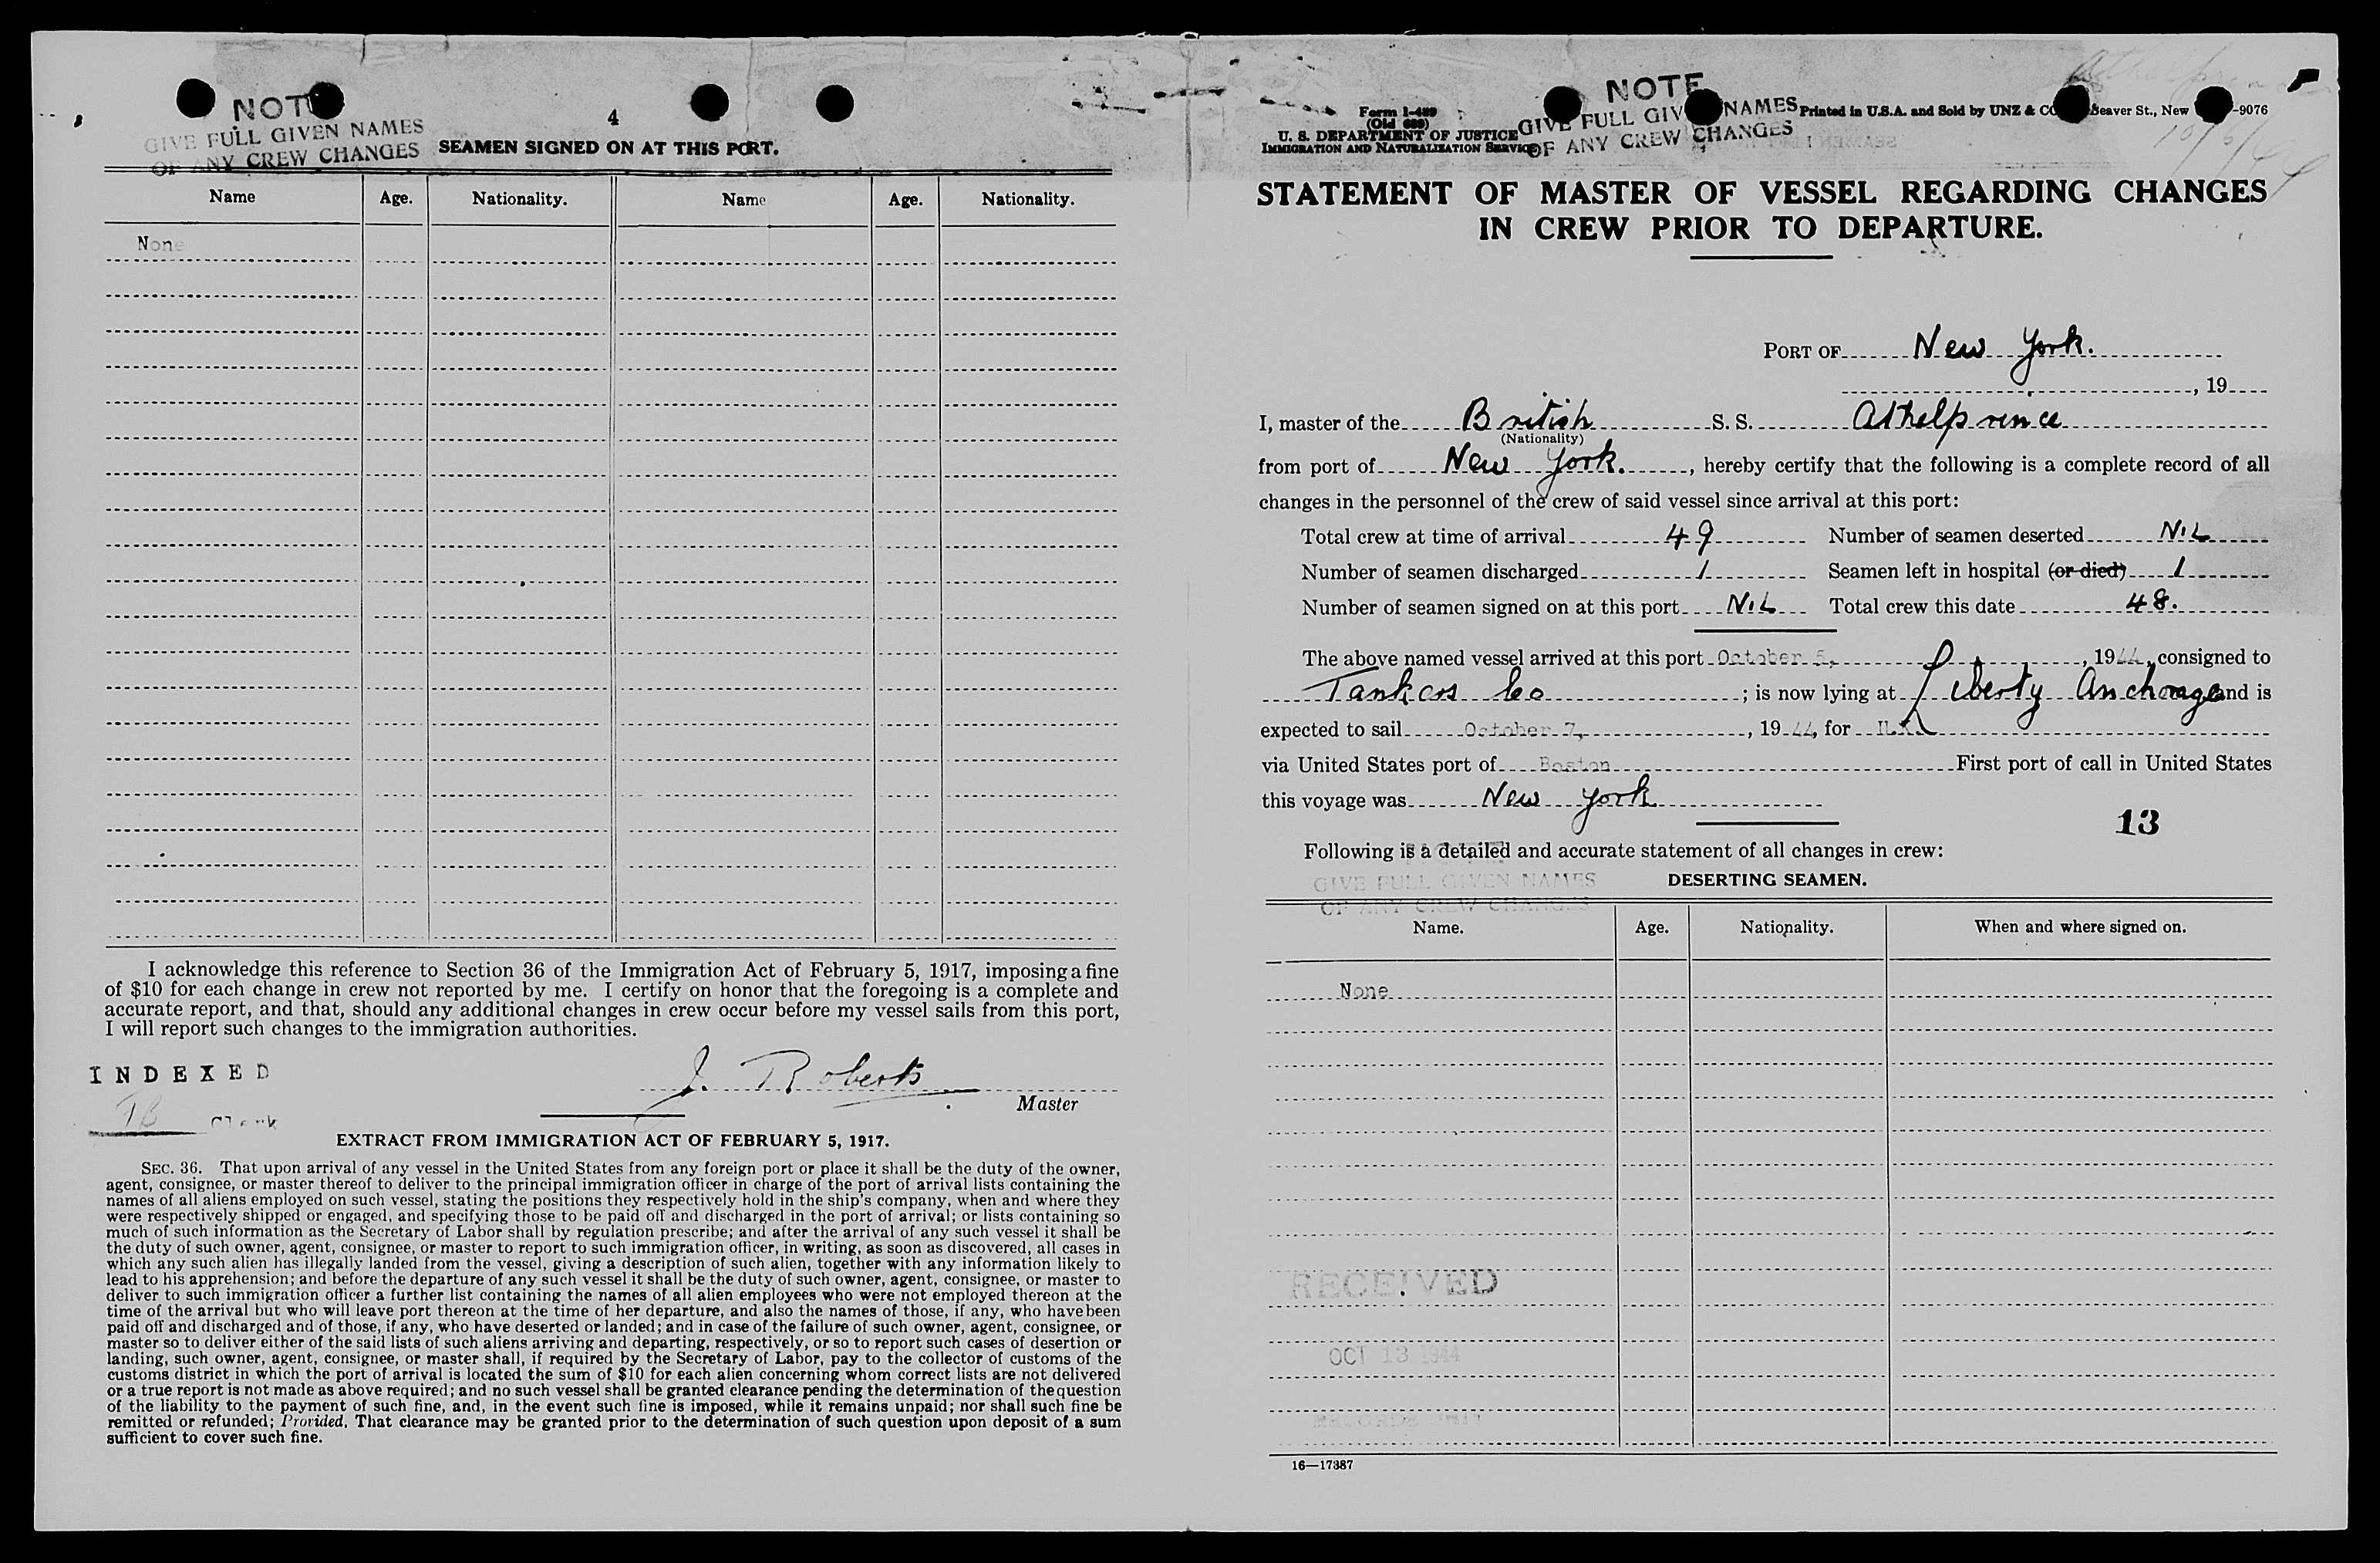 NOTE
GIVE FULL GIVEN NAMES
OF ANY CREW CHANGES
4
SEAMEN SIGNED ON AT THIS PORT.
Name Age. Nationality. Name Age. Nationality.
None
I acknowledge this reference to Section 36 of the Immigration Act of February 5, 1917, imposing a fine
of $10 for each change in crew not reported by me. I certify on honor that the foregoing is a complete and
accurate report, and that, should any additional changes in crew occur before my vessel sails from this port,
I will report such changes to the immigration authorities.
INDEXED
J. Roberts
Master
Clerk
EXTRACT FROM IMMIGRATION ACT OF FEBRUARY 5, 1917.
SEC. 36. That upon arrival of any vessel in the United States from any foreign port or place it shall be the duty of the owner,
agent, consignee, or master thereof to deliver to the principal immigration officer in charge of the port of arrival lists containing the
names of all aliens employed on such vessel, stating the positions they respectively hold in the ship's company, when and where they
were respectively shipped or engaged, and specifying those to be paid off and discharged in the port of arrival; or lists containing so
much of such information as the Secretary of Labor shall by regulation prescribe; and after the arrival of any such vessel it shall be
the duty of such owner, agent, consignee, or master to report to such immigration officer, in writing, as soon as discovered, all cases in
which any such alien has illegally landed from the vessel, giving a description of such alien, together with any information likely to
lead to his apprehension; and before the departure of any such vessel it shall be the duty of such owner, agent, consignee, or master to
deliver to such immigration officer a further list containing the names of all alien employees who were not employed thereon at the
time of the arrival but who will leave port thereon at the time of her departure, and also the names of those, if any, who have been
paid off and discharged and of those, if any, who have deserted or landed; and in case of the failure of such owner, agent, consignee, or
master so to deliver either of the said lists of such aliens arriving and departing, respectively, or so to report such cases of desertion or
landing, such owner, agent, consignee, or master shall, if required by the Secretary of Labor, pay to the collector of customs of the
customs district in which the port of arrival is located the sum of $10 for each alien concerning whom correct lists are not delivered
or a true report is not made as above required; and no such vessel shall be granted clearance pending the determination of the question
of the liability to the payment of such fine, and, in the event such fine is imposed, while it remains unpaid; nor shall such fine be
remitted or refunded; Provided, That clearance may be granted prior to the determination of such question upon deposit of a sum
sufficient to cover such fine.
Athelprince
10/6/44
NOTE
GIVE FULL GIVEN NAMES
OF ANY CREW CHANGES
Form I-489
(Old 689)
U. S. DEPARTMENT OF JUSTICE
IMMIGRATION AND NATURALIZATION SERVICE
Printed in U.S.A. and Sold by UNZ & CO Beaver St., New -9076
STATEMENT OF MASTER OF VESSEL REGARDING CHANGES
IN CREW PRIOR TO DEPARTURE.
PORT OF New York.
, 19
I, master of the British S. S. Athelprince
(Nationality)
from port of New York. , hereby certify that the following is a complete record of all
changes in the personnel of the crew of said vessel since arrival at this port:
Total crew at time of arrival 49 Number of seamen deserted NIL
Number of seamen discharged 1 Seamen left in hospital (or died) 1
Number of seamen signed on at this port NIL Total crew this date 48.
The above named vessel arrived at this port October 5, , 1944, consigned to
Tankers Co ; is now lying at Liberty Anchorage and is
expected to sail October 7, , 1944, for U.K.
via United States port of Boston First port of call in United States
this voyage was New York
13
Following is a detailed and accurate statement of all changes in crew:
GIVE FULL GIVEN NAMES
OF ANY CREW CHANGES
DESERTING SEAMEN.
Name. Age. Nationality. When and where signed on.
None
RECEIVED
OCT 13 1944
RECORDS UNIT
16—17387